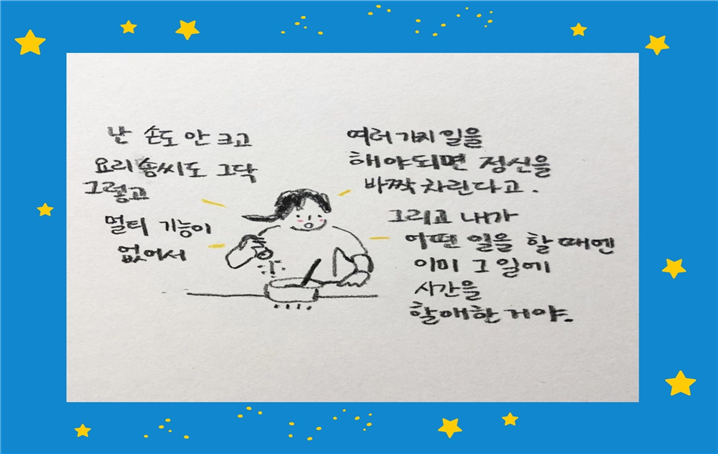 난 손도 안 크고
요리솜씨도 그닥
그렇고
멀티 기능이
없어서
여러가지 일을
해야되면 정신을
바짝 차린다고.
그리고 내가
어떤 일을 할 때엔
이미 그 일에
시간을
할애한 거야.